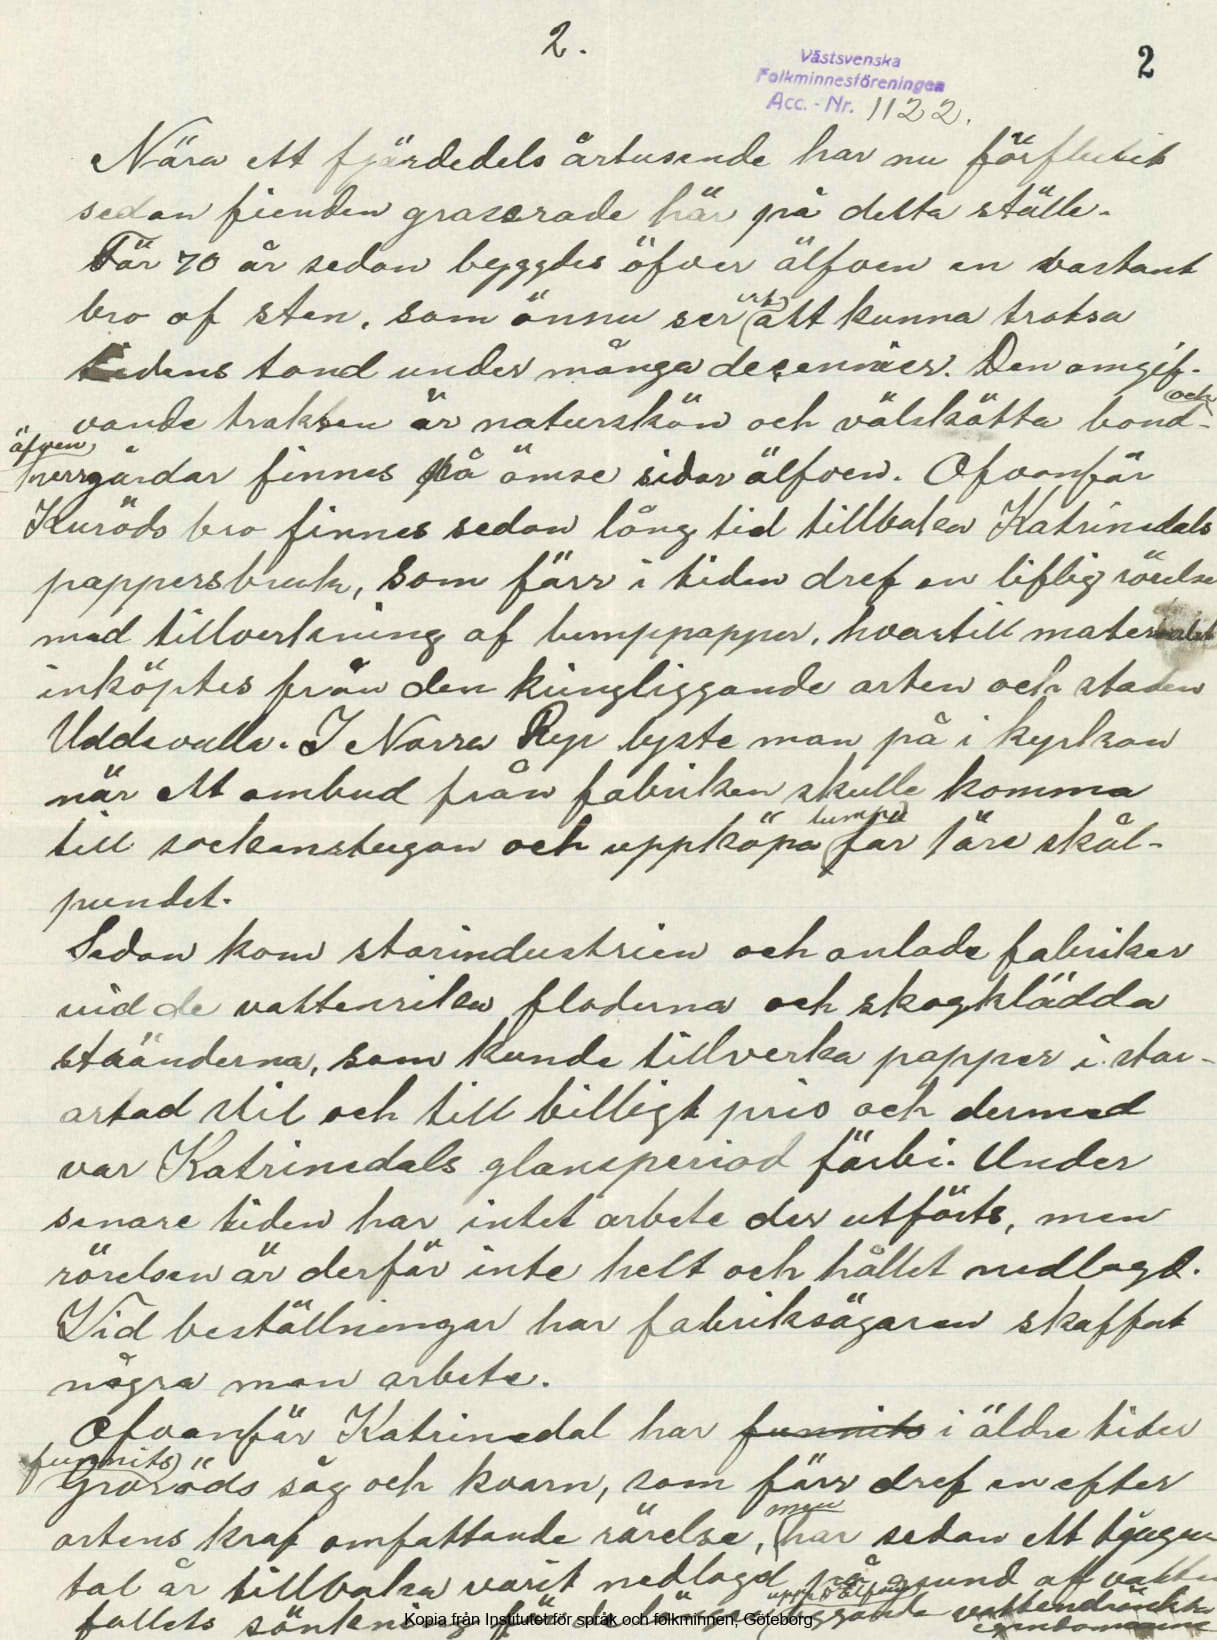 2.
2
Västsvenska
Folkminnesföreningen
Acc. - Nr. 1122.
Nära ett fjärdedels årtusende har nu förflutit
sedan fienden grasserade här på detta ställe.
För 70 år sedan byggdes öfver älfven en bastant
bro af sten, som ännu ser ut att kunna trotsa
tidens tand under många decennier. Den omgif-
vande trakten är naturskön och välskötta bond- och
äfven
herrgårdar finnes på ömse sidor älfven. Ofvanför
Kuröds bro finnes sedan lång tid tillbaka Katrinedals
pappersbruk, som förr i tiden dref en liflig rörelse
med tillverkning af lumppapper, hvartill materialet
inköptes från den kringliggande orten och staden
Uddevalla. I Norra Ryr lyste man på i kyrkan
när ett ombud från fabriken skulle komma
till sockenstugan och uppköpa lump för 1 öre skål-
pundet.
Sedan kom storindustrien och anlade fabriker
vid de vattenrika floderna och skogklädda
stränderna, som kunde tillverka papper i stor-
artad stil och till billigt pris och dermed
var Katrinedals glansperiod förbi. Under
senare tiden har intet arbete der utförts, men
rörelsen är derför inte helt och hållet nedlagd.
Vid beställningar har fabriksägaren skaffat
några man arbete.
Ofvanför Katrinedal har funnits i äldre tider
funnits
Groröds såg och kvarn, som förr dref en efter
ortens kraf omfattande rörelse, men har sedan ett tjugu
tal år tillbaka varit nedlagd på grund af vatten
fallets sänkning för de
vattendränkta
egendomarne
Kopia från Institutet för språk och folkminnen, Göteborg